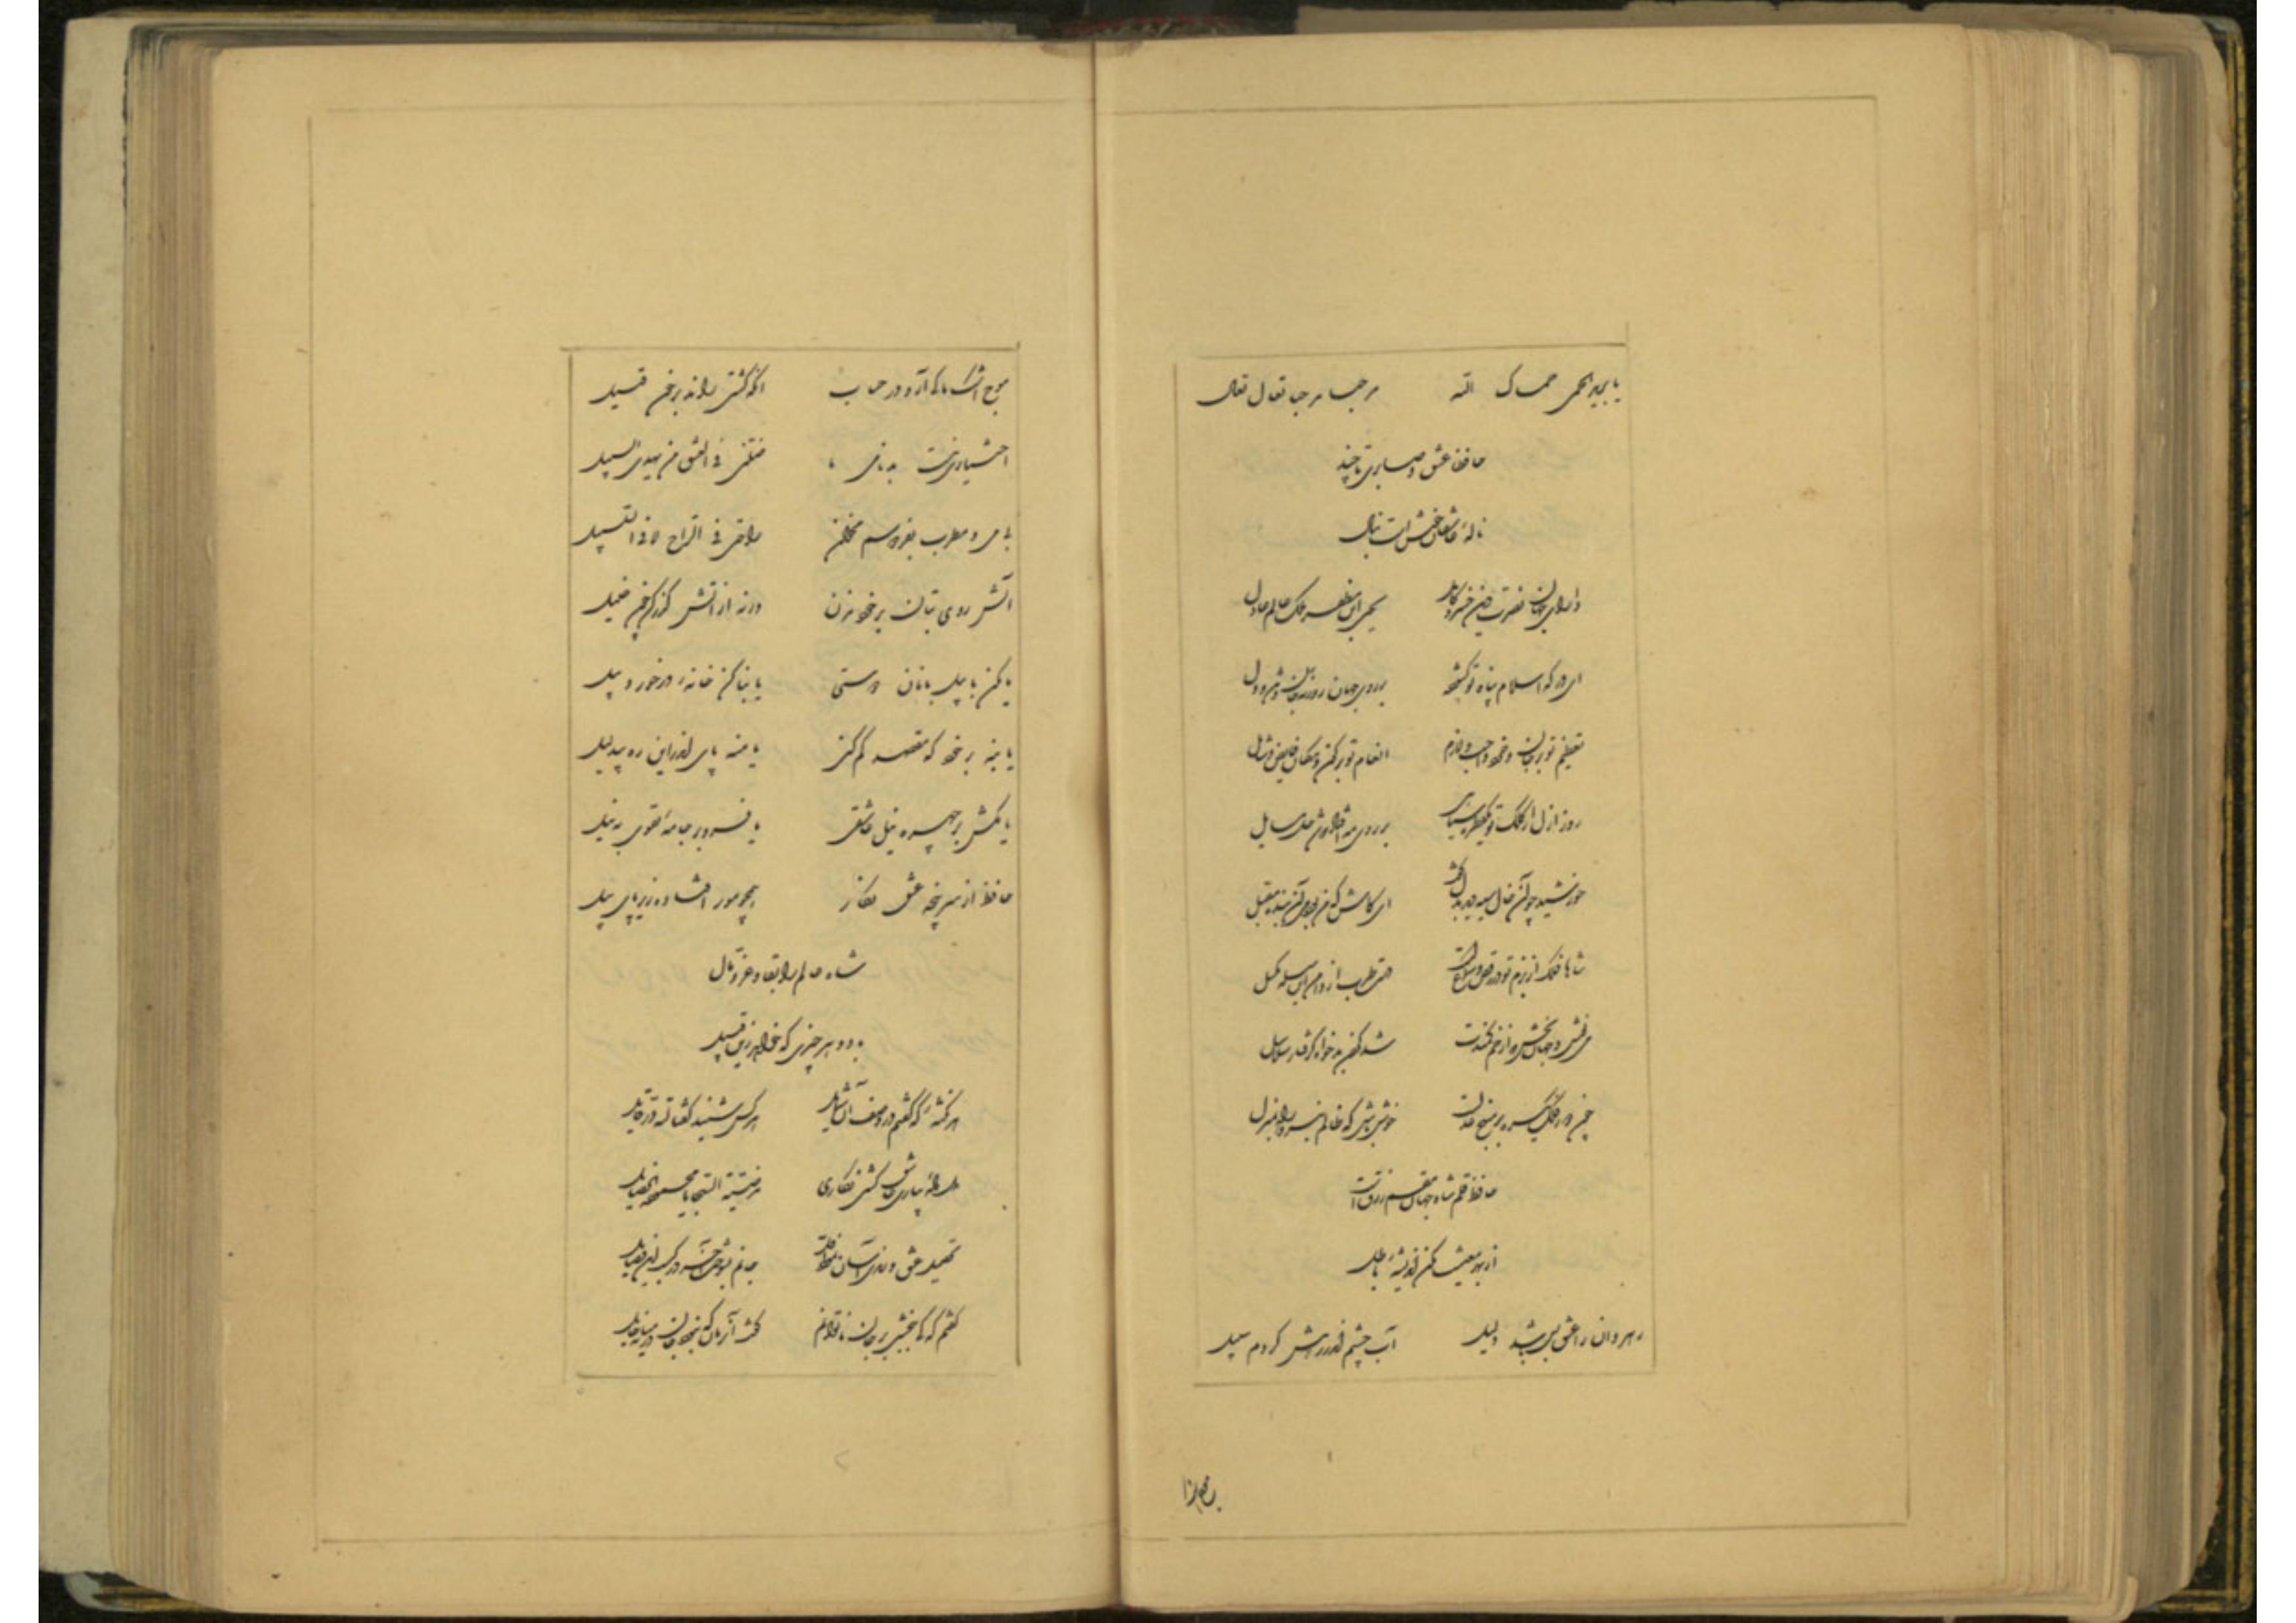 یا برید الحمی حماک الله مرحبا مرحبا تعال تعال
حافظا عشق و صابری تا چند
نالهٔ عاشقان خوش است بنال
دارای جهان نصرت دین خسرو کامل یحیی ابن مظفر ملک عالم عادل
ای درکه اسلام پناه تو کشوده بر روی جهان روزنهٔ جان و در دل
تعظیم تو بر جان و خرد واجب و لازم انعام تو بر کون و مکان فایض و شامل
روز ازل از کلک تو یک قطره سیاهی بر روی مه افتاد که شد حل مسایل
خورشید چو آن خال سیه دید بدل گفت ای کاش که من بودمی آن بندهٔ مقبل
شاها فلک از بزم تو در رقص و سماعست دست طرب از دامن این سلسله مکسل
می نوش و جهان بخش که از خم کمندت شد گردن بدخواه گرفتار سلاسل
چون دور فلک یکسره بر منهج عدلست خوش باش که ظالم نبرد راه بمنزل
حافظ قلم شاه جهان مقسم رزقست
از بهر معیشت مکن اندیشهٔ باطل
رهروان را عشق بس باشد دلیل آب چشم اندر رهش کردم سبیل
موج اشک ما کی آرد در حساب آنکه کشتی راند بر خون قتیل
اختیاری نیست بدنامی ما ضلنی فی العشق من یهدی السبیل
بی می و مطرب بفردوسم مخوان راحتی فی الراح لا فی السلسبیل
آتش روی بتان بر خود مزن ورنه از آتش گذر کن چون خلیل
یا مکن با پیلبانان دوستی یا بنا کن خانهٔ در خورد پیل
یا بنه بر خود که مقصد گم کنی یا منه پای اندراین ره بیدلیل
یا مکش بر چهره نیل عاشقی یا فرو بر جامهٔ تقوی به نیل
حافظ از سرپنجهٔ عشق نگار همچو مور افتاده زیر پای پیل
شاه عالم را بقا و عز و مال
باد و هر چیزی که خواهد زین قبیل
هر نکتهٔ که گفتم در وصف آن شمایل هر کس شنید گفتا لله در قایل
دل دادهٔ بیاری عاشق کشی نگاری مرضیة السجایا محمودة الخصایل
تحصیل عشق و رندی آسان نمود اول جانم بسوخت آخر در کسب این فضایل
گفتم که کی ببخشی بر جان ناتوانم گفت آن زمان که نبود جان در میانه حایل